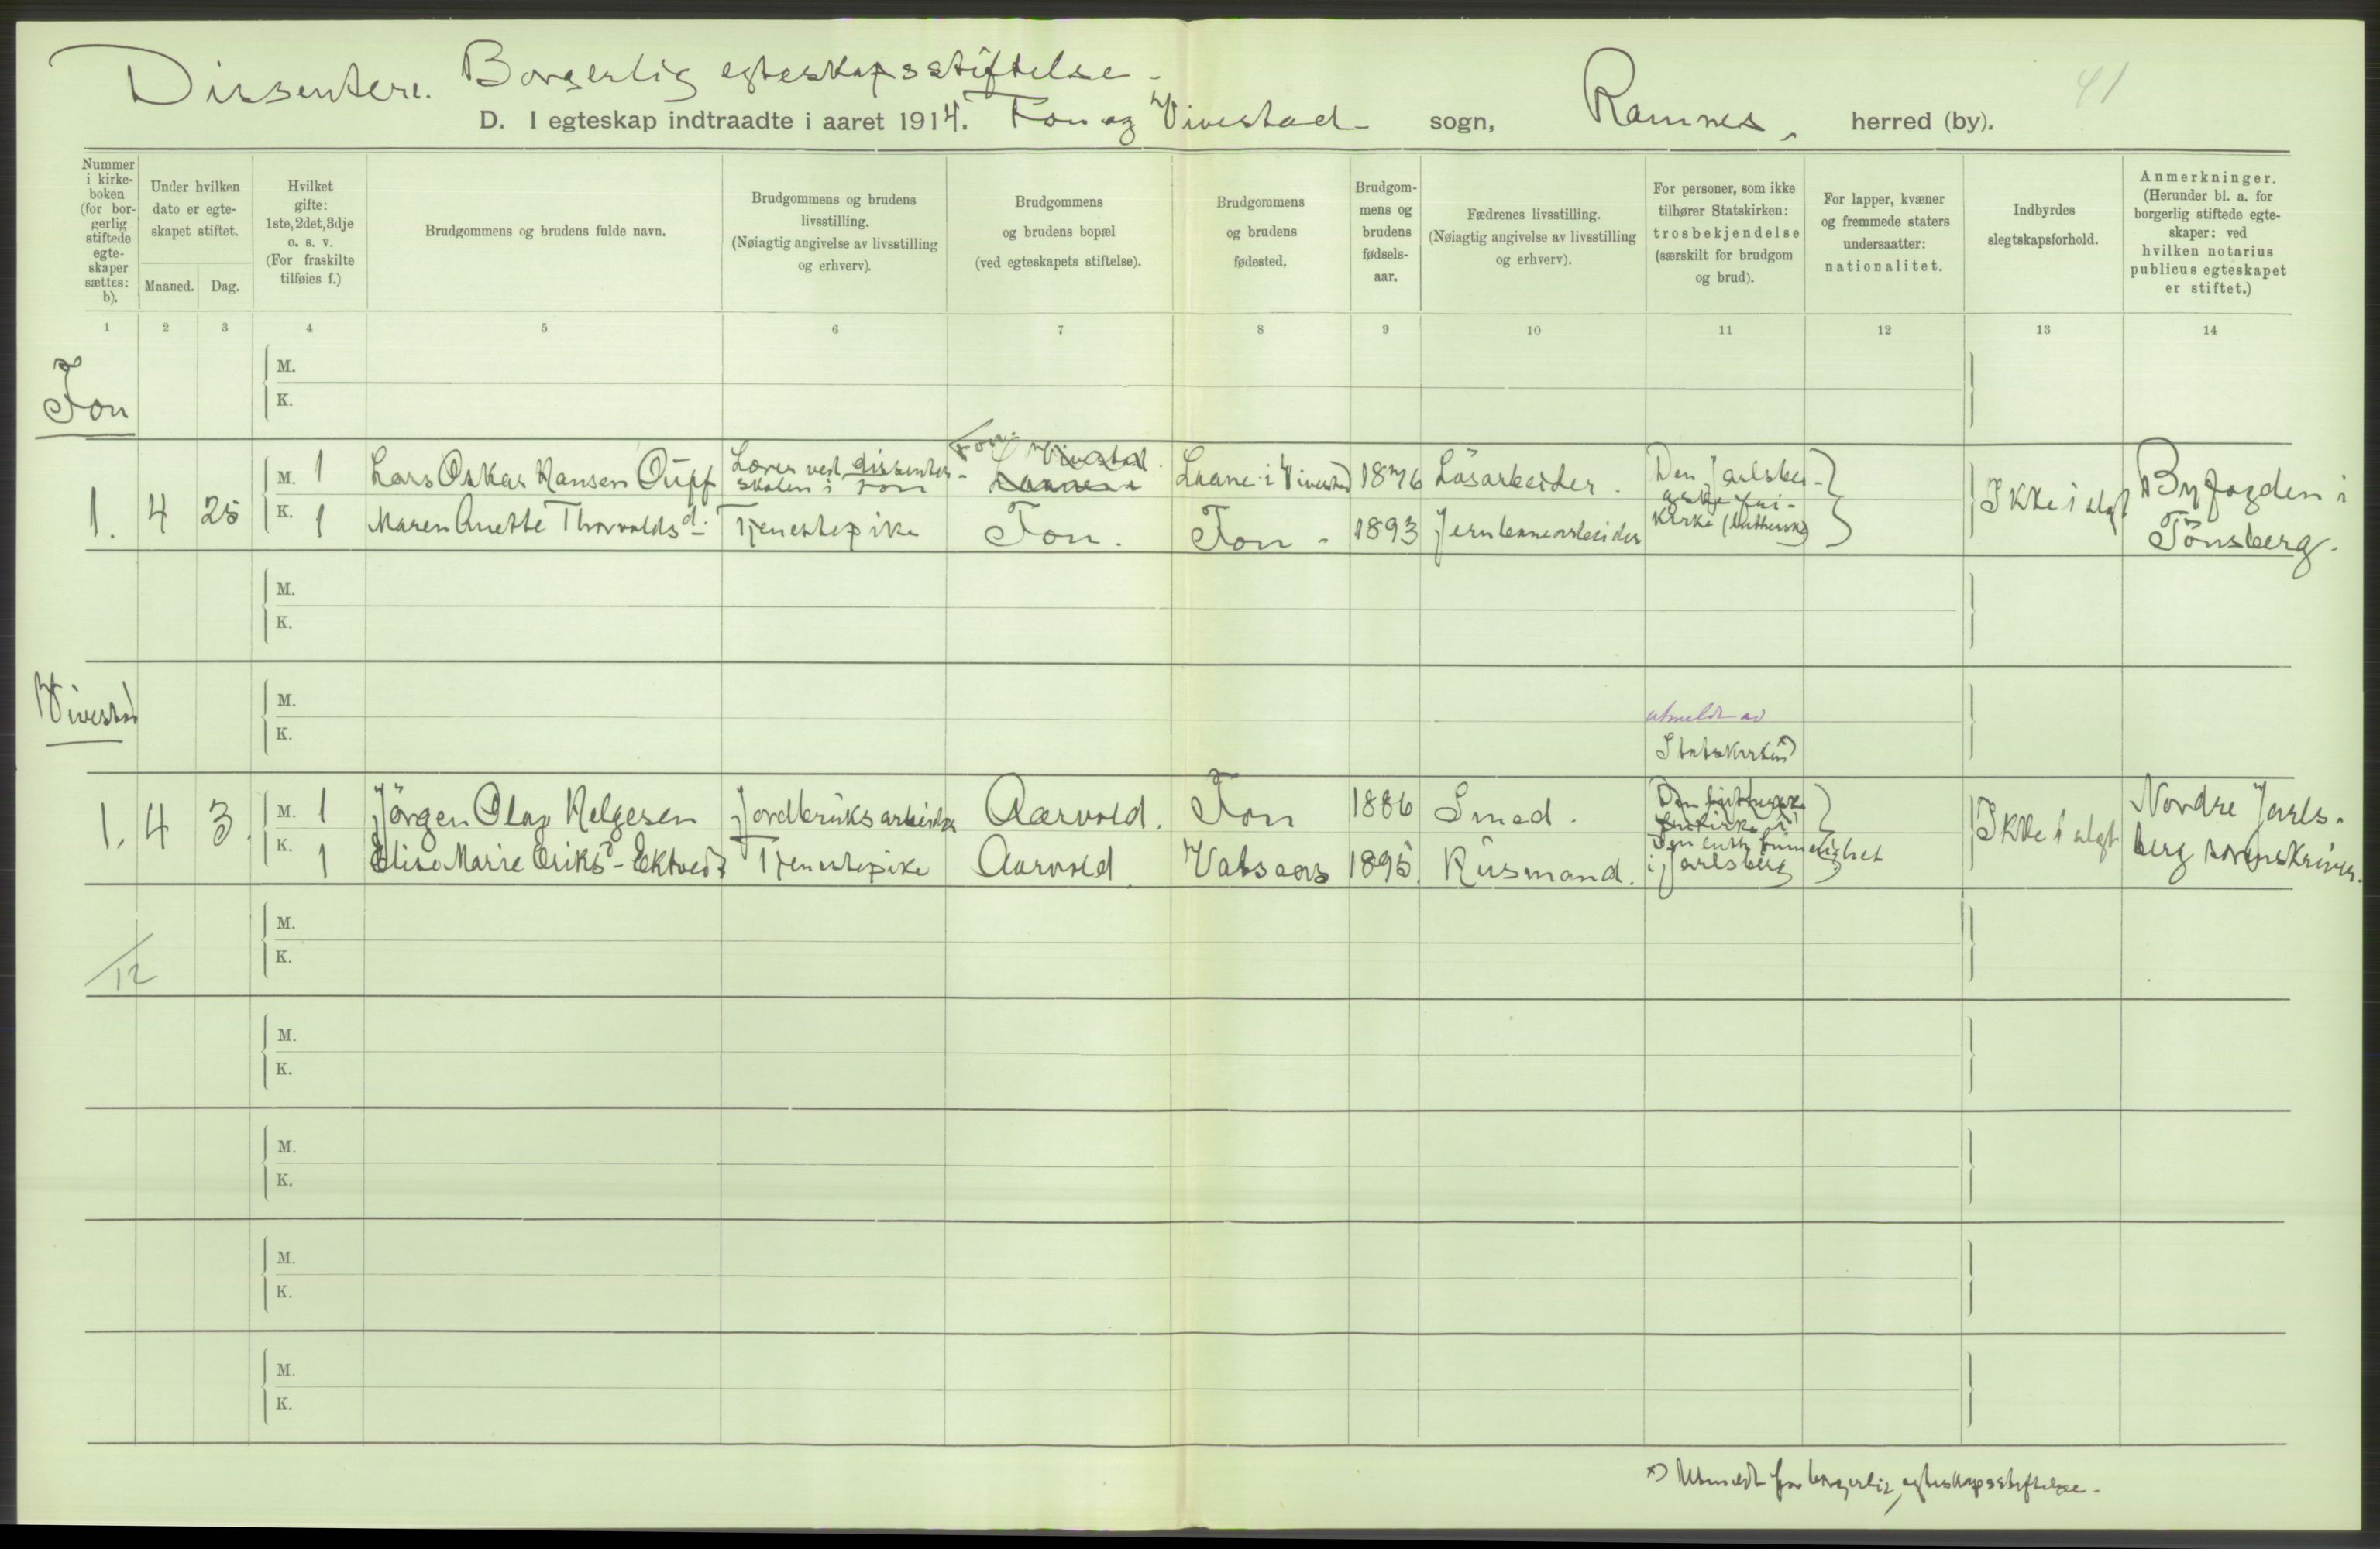 Dissentere. Borgerlig egteskapsstiftelse.
41
D. I egteskap indtraadte i aaret 1914. Fon og Vivestad sogn, Ramnes, herred (by).
Nummer i kirkeboken (for borgerlig stiftede egteskaper sættes: b).
Under hvilken dato er egteskapet stiftet.
Maaned. Dag.
Hvilket gifte: 1ste, 2det, 3dje o. s. v. (For fraskilte tilføies f.)
Brudgommens og brudens fulde navn.
Brudgommens og brudens livsstilling. (Nøiagtig angivelse av livsstilling og erhverv).
Brudgommens og brudens bopæl (ved egteskapets stiftelse).
Brudgommens og brudens fødested.
Brudgommens og brudens fødselsaar.
Fædrenes livsstilling. (Nøiagtig angivelse av livsstilling og erhverv).
For personer, som ikke tilhører Statskirken: trosbekjendelse (særskilt for brudgom og brud).
For lapper, kvæner og fremmede staters undersaatter: nationalitet.
Indbyrdes slegtskapsforhold.
Anmerkninger. (Herunder bl. a. for borgerlig stiftede egteskaper: ved hvilken notarius publicus egteskapet er stiftet.)
1 2 3 4 5 6 7 8 9 10 11 12 13 14
Fon
M.
K.
1. 4 25
M. 1 Lars Oskar Hansen Oupf Lærer ved dissenterskolen i Fon Fon. Vivestad Laane i Vivestad 1876 Løsarbeider. Den Jarlsbergske frikirke (luthersk) Ikke i slegt Byfogden i Tönsberg.
K. 1 Maren Anette Thorvaldsd. Tjenestepike Fon. Fon 1893 Jernbanearbeider
M.
K.
Vivestad
M.
K.
utmeldt av
Statskirken
1. 4 3.
M. 1 Jörgen Olav Helgesen Jordbruksarbeider Aarvold. Fon 1886 Smed. Den lutherske frikirke i Ikke i slegt Nordre Jarlsberg sorenskriver.
K. 1 Elise Marie Eriksd - Ektvedt Tjenestepike Aarvold Vatsaas 1895. Husmand. Den luth frimenighet i Jarlsberg
M.
K.
12
M.
K.
M.
K.
M.
K.
M.
K.
x) Utmeldt for borgerlig egteskapsstiftelse.